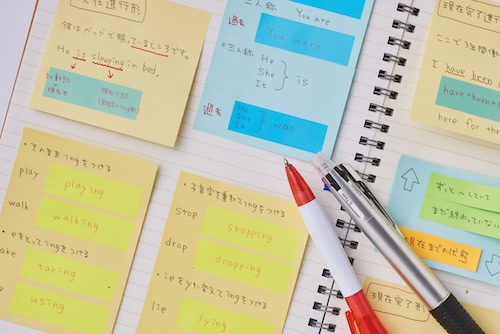 在進行形
彼はベッドで眠っているところです。
He is sleeping in bed.
be動詞の
現在形
現在分詞
(動詞のing形)
人称
You are
過去
You were
・三人称
He
She
It
is
過去
He
She
It
was
現在完了進
ここで3年間働
I have been
here for th
・そのままingをつける
play
playing
walk
walking
・eをとってingをつける
ake
taking
e
using
・子音字を重ねてingをつける
stop
stopping
drop
dropping
・ieをyに変えてingをつける
lie
lying
ずっと〜していて
まだ終わっていない
現在までの状態
現在完了形